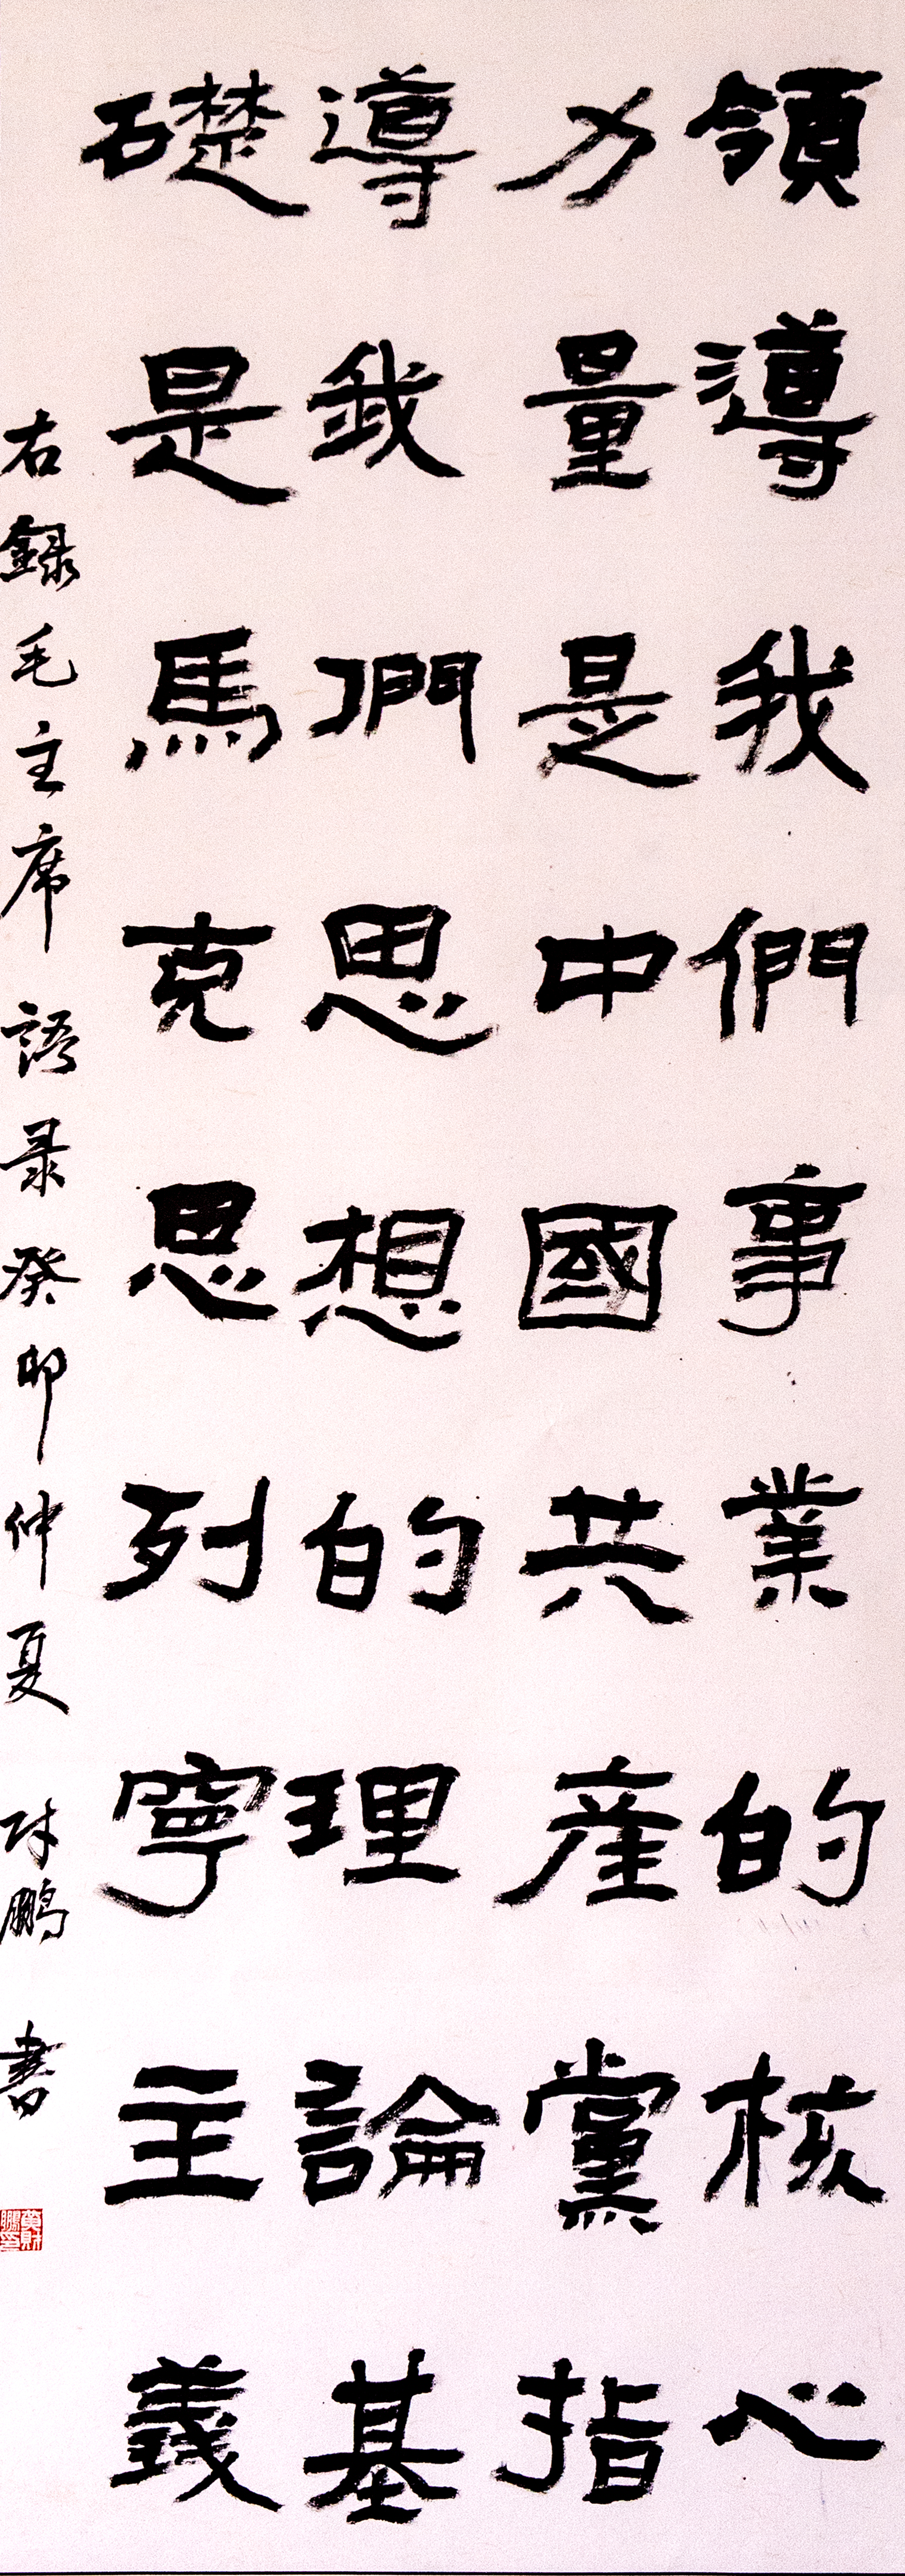 領導我們事業的核心
力量是中國共產黨指
導我們思想的理論基
礎是馬克思列寧主義
右錄毛主席語录癸卯仲夏財鵬書
黃財鵬印